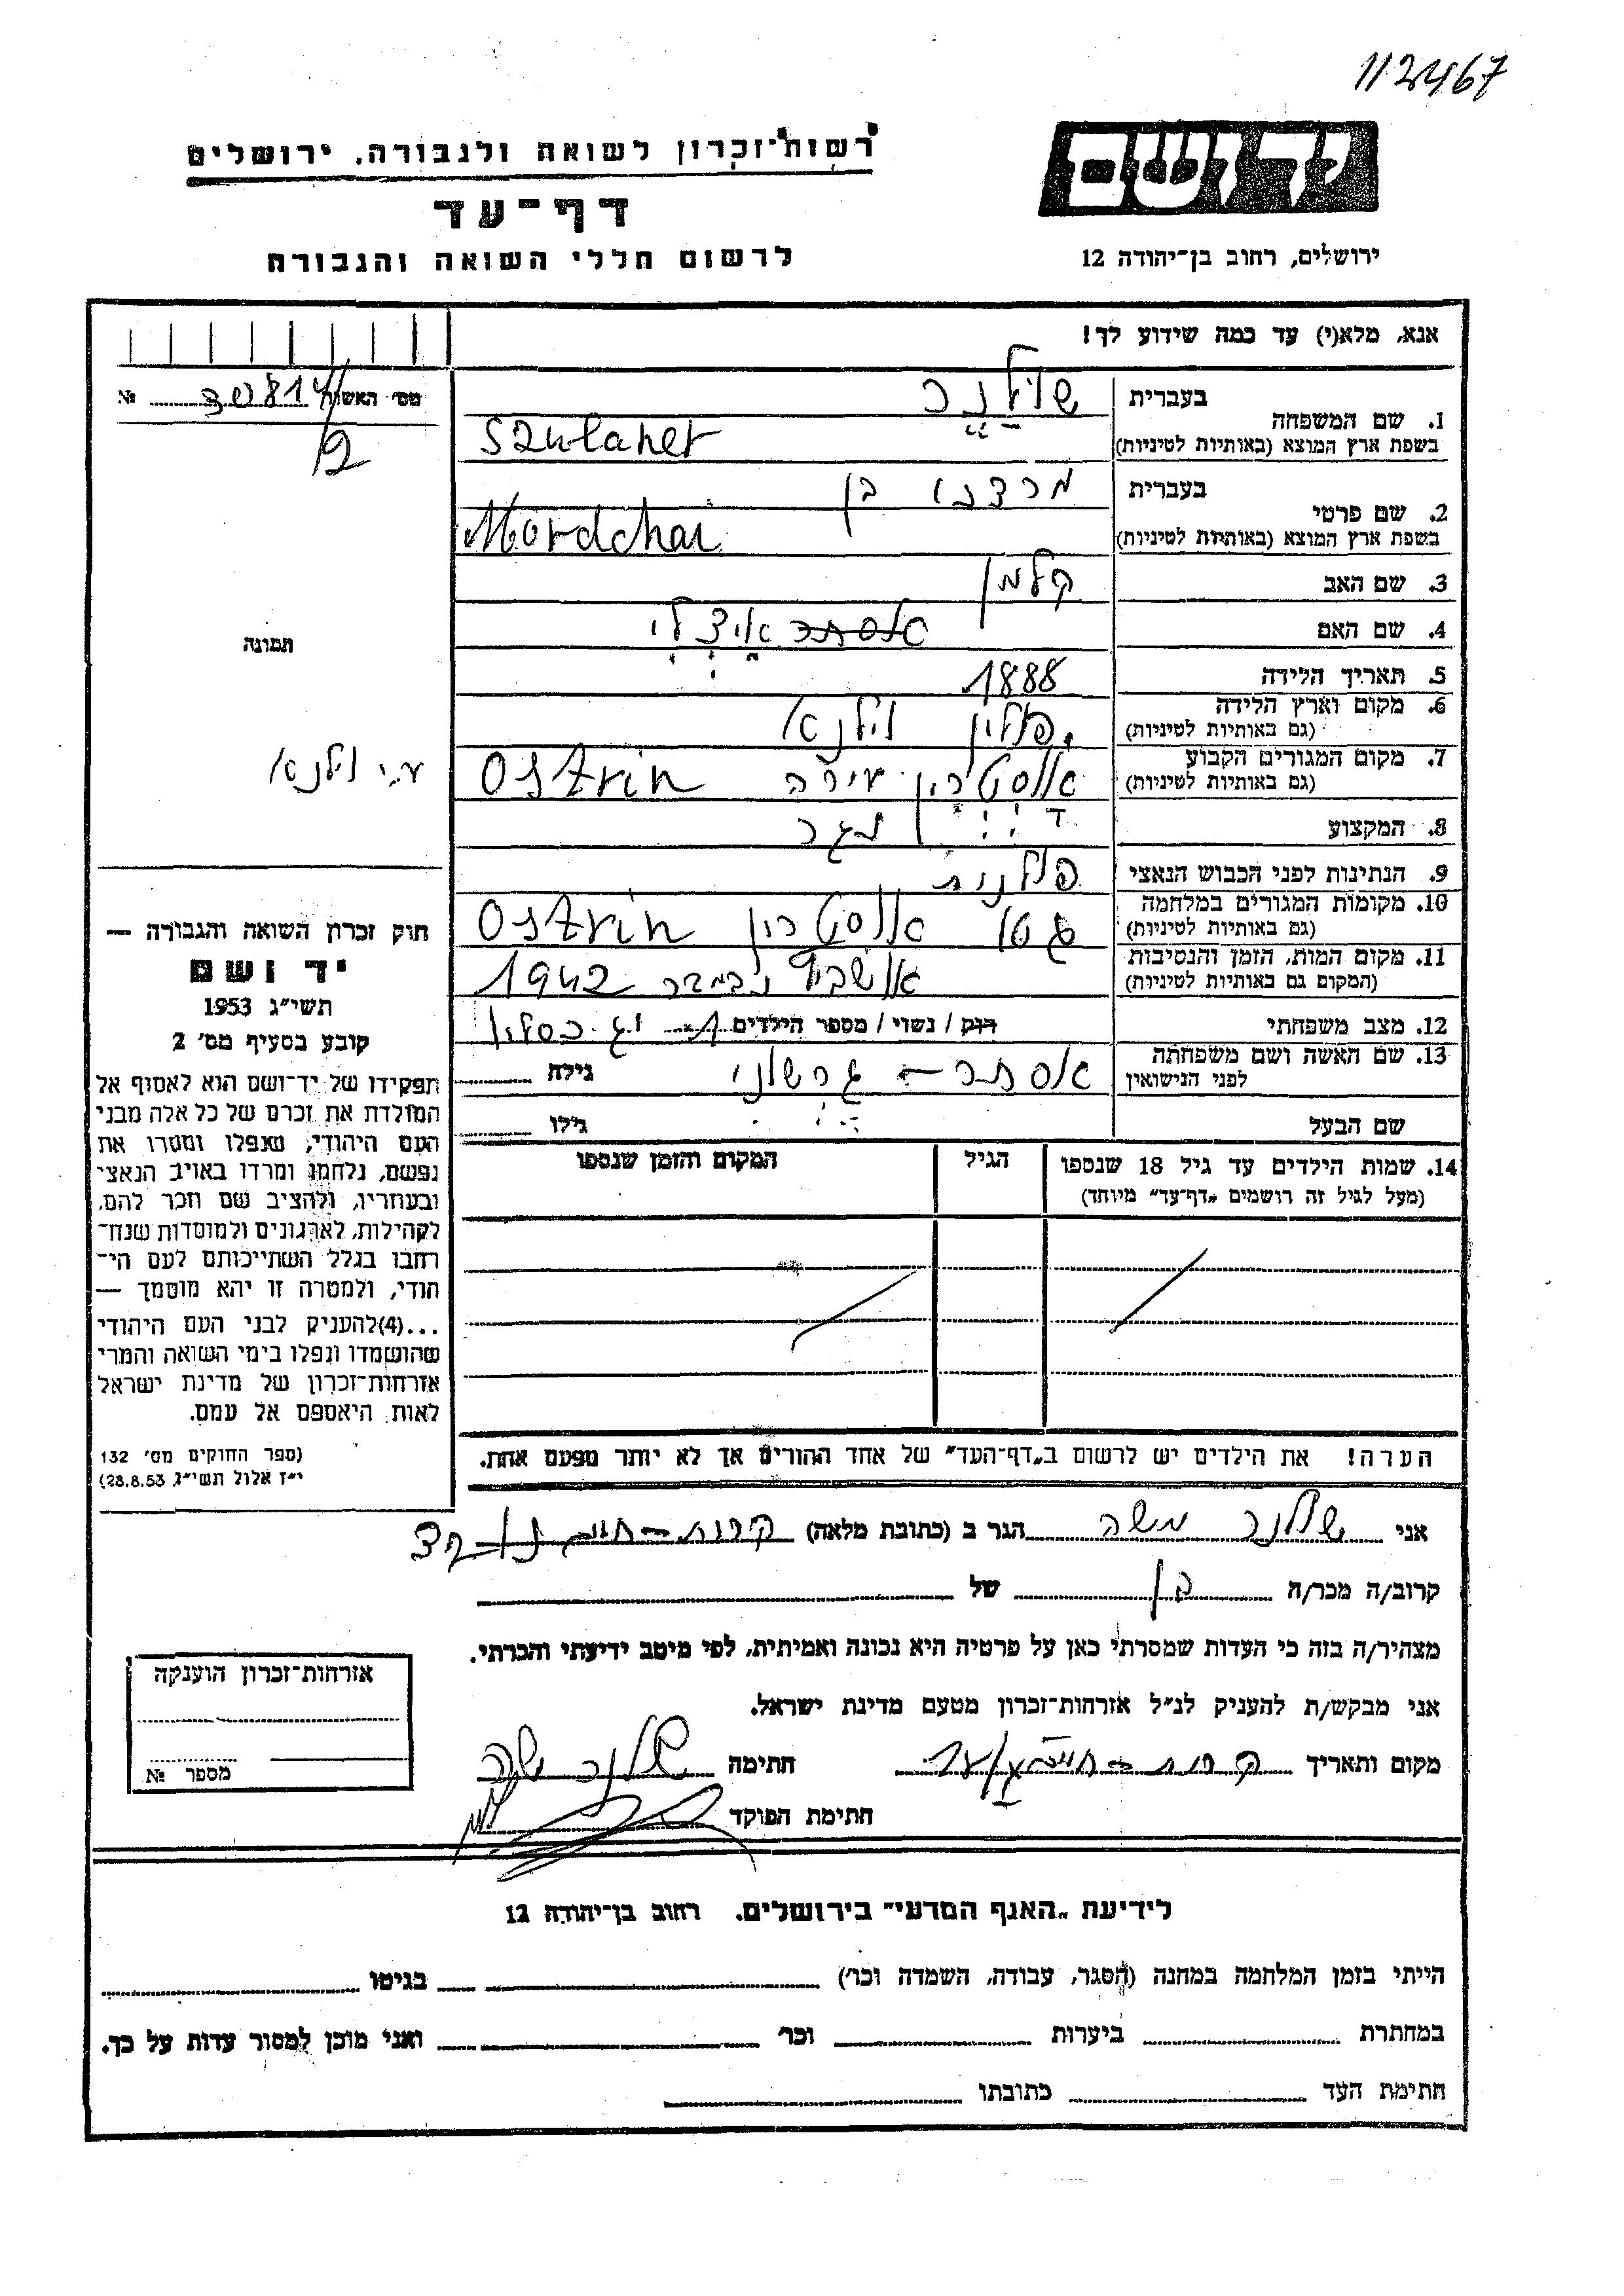 112467
רשות־זכרון לשואה ולגבורה, ירושלים
יד ושם
דף־עד
לרשום חללי השואה והגבורה
ירושלים, רחוב בן־יהודה 12
אנא, מלא(י) עד כמה שידוע לך!
מס׳ האשה 30814/ №
/2
1. שם המשפחה
בעברית
שולנר
בשפת ארץ המוצא (באותיות לטיניות)
Szulaner
2. שם פרטי
בעברית
מרדכי בן
בשפת ארץ המוצא (באותיות לטיניות)
Mordchai
3. שם האב קלמן
4. שם האם
5. תאריך הלידה 1888
6. מקום וארץ הלידה פולין וילנא
(גם באותיות לטיניות)
7. מקום המגורים הקבוע Ostrin
(גם באותיות לטיניות)
ע״י וילנא
8. המקצוע
9. הנתינות לפני הכבוש הנאצי פולנית
10. מקומות המגורים במלחמה גטו Ostrin
(גם באותיות לטיניות)
11. מקום המות, הזמן והנסיבות אושביץ נובמבר 1942
(המקום גם באותיות לטיניות)
12. מצב משפחתי רוק / נשוי / מספר הילדים
13. שם האשה ושם משפחתה אסתר – גרשוני גילה
לפני הנישואין
שם הבעל גילו
14. שמות הילדים עד גיל 18 שנספו הגיל המקום והזמן שנספו
(מעל לגיל זה רושמים „דף־עד" מיוחד)
הערה! את הילדים יש לרשום ב„דף־העד" של אחד ההורים אך לא יותר מפעם אחת.
תמונה
חוק זכרון השואה והגבורה —
יד ושם
תשי״ג 1953
קובע בסעיף מס׳ 2
תפקידו של יד־ושם הוא לאסוף אל
המולדת את זכרם של כל אלה מבני
העם היהודי, שנפלו ומסרו את
נפשם, נלחמו ומרדו באויב הנאצי
ובעוזריו, ולהציב שם וזכר להם,
לקהילות, לארגונים ולמוסדות שנח־
רבו בגלל השתייכותם לעם הי־
הודי, ולמטרה זו יהא מוסמך —
...(4)להעניק לבני העם היהודי
שהושמדו ונפלו בימי השואה והמרי
אזרחות־זכרון של מדינת ישראל
לאות היאספם אל עמם.
(ספר החוקים מס׳ 132
י״ז אלול תשי״ג 28.8.53)
אני שולנר משה הגר ב (כתובת מלאה) קרית־חיים
קרוב/ה מכר/ה בן של
מצהיר/ה בזה כי העדות שמסרתי כאן על פרטיה היא נכונה ואמיתית, לפי מיטב ידיעתי והכרתי.
אני מבקש/ת להעניק לנ״ל אזרחות־זכרון מטעם מדינת ישראל.
מקום ותאריך קרית־חיים חתימה שולנר משה
חתימת הפוקד
אזרחות־זכרון הוענקה
מספר №
לידיעת „האגף המדעי" בירושלים. רחוב בן־יהודה 12
הייתי בזמן המלחמה במחנה (הסגר, עבודה, השמדה וכו׳) בגיטו
במחתרת ביערות וכו׳ ואני מוכן למסור עדות על כך.
חתימת העד כתובתו